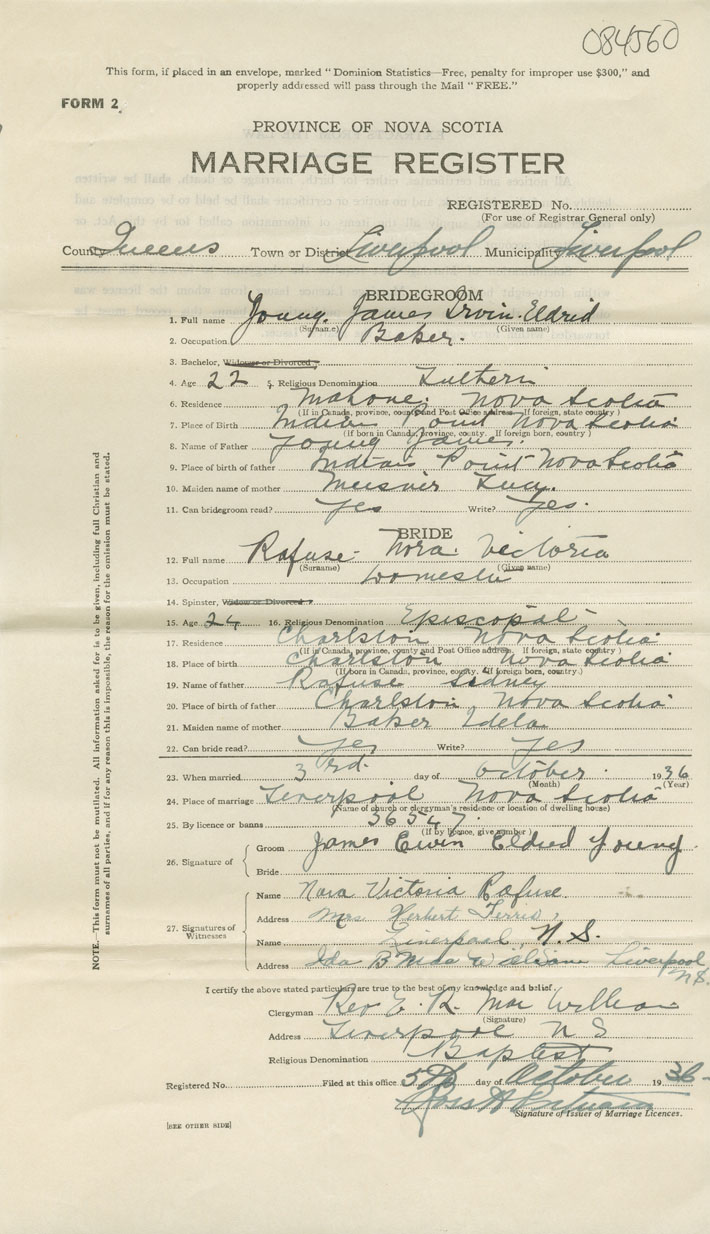 084560
This form, if placed in an envelope, marked "Dominion Statistics—Free, penalty for improper use $300," and
properly addressed will pass through the Mail "FREE."
FORM 2
PROVINCE OF NOVA SCOTIA
MARRIAGE REGISTER
REGISTERED No.
(For use of Registrar General only)
County Queens Town or District Liverpool Municipality Liverpool
BRIDEGROOM
1. Full name Young. James Irvin Eldrid
(Surname) (Given name)
2. Occupation Baker.
3. Bachelor, Widower or Divorced
4. Age 22 5. Religious Denomination Lutherin
6. Residence Mahone. Nova Scotia
(If in Canada, province, county and Post Office address. If foreign, state country)
7. Place of Birth Indian Point Nova Scotia
(If born in Canada, province, county. If foreign born, country)
8. Name of Father Young James.
9. Place of birth of father Indian Point Nova Scotia
10. Maiden name of mother Meisnir Lucy.
11. Can bridegroom read? yes Write? yes.
BRIDE
12. Full name Rafuse- Nora. Victoria
(Surname) (Given name)
13. Occupation Domestic
14. Spinster, Widow or Divorced
15. Age 24 16. Religious Denomination Episcopal
17. Residence Charlston Nova Scotia
(If in Canada, province, county and Post Office address. If foreign, state country)
18. Place of birth Charlston Nova Scotia
(If born in Canada, province, county. If foreign born, country.)
19. Name of father Rafuse Sidney
20. Place of birth of father Charlston Nova Scotia
21. Maiden name of mother Baker Idela
22. Can bride read? yes Write? yes
23. When married 3rd. day of October. 1936
(Month) (Year)
24. Place of marriage Liverpool Nova Scotia
(Name of church or clergyman's residence or location of dwelling house)
25. By licence or banns 36547.
(If by licence, give number)
26. Signature of
Groom James Ervin Eldred Young.
Bride
27. Signatures of Witnesses
Name Nora Victoria Rafuse
Address Mrs Herbert
Name Liverpool, N.S.
Address Ida B Liverpool
N.S.
I certify the above stated particulars are true to the best of my knowledge and belief.
Clergyman Rev E. R. Mac William
(Signature)
Address Liverpool N S
Religious Denomination Baptist
Registered No. Filed at this office 5th day of October 1936
Signature of Issuer of Marriage Licences.
[SEE OTHER SIDE]
NOTE.—This form must not be mutilated. All information asked for is to be given, including full Christian and
surnames of all parties, and if for any reason this is impossible, the reason for the omission must be stated.